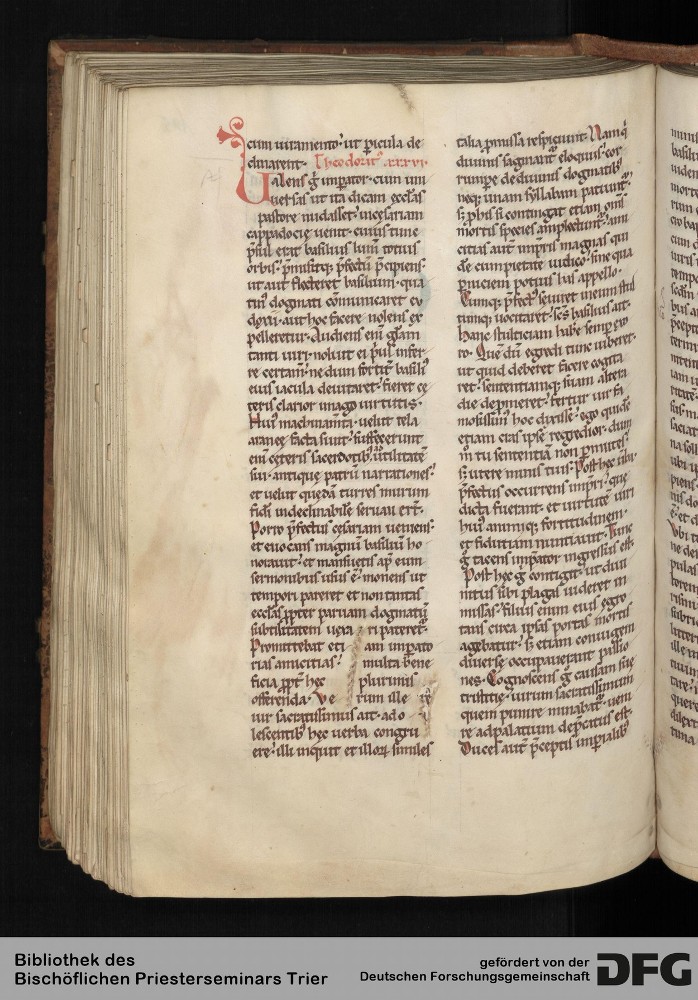 cum iuramento ut ꝑicula de
clinarent. Theodorit' xxxvi.
Ualens g̃ imꝑator. cum uni
uersas ut ita dicam ecctas
pastore nudasset. ad cesariam
cappadocię uenit. cuius tunc
p̃sul erat basilius lum̃ totius
orbis. p̃misitq; p̃fectũ p̃cipiens.
ut aut flecteret basilium. qua
tin' dogmati cõmunicaret eu
doxii. aut hoc facere nolens ex
pelleretur. Audiens eni gtam
tanti uiri. noluit ei p̃sul infer
re certam̃. ne dum fortit̃ basili'
eius iacula deuitaret. fieret ce
teris clarior imago uirtutis.
Hui' machinam̃ta. uelut tela
aranee facta sunt. suffecerunt
eni ceteris sacerdotib; ad utilitatẽ
sui. antique patrũ narrationes.
et uelut quedã turres murum
fidei indeclinabilẽ seruauer̃t.
Porro p̃fectus cesariam ueniens.
et euocans magnũ basiliũ ho
norauit. et mansuetis ap̃ eum
sermonibus usus ẽ. monens ut
tempori pareret et non tantas
ecctas ꝓpter paruam dogmatũ
subtilitatem uexari pateret.
Promittebat eti am imꝑato
rias amicitias. multa bene
ficia ꝓpt̃ hec plurimis
offerenda. Ve rum ille
uir sacratissimus ait. ado
lescentib; hec uerba congru
ere. illi inquit et illor̃ similes
talia ꝓmissa respiciunt. Nam q̃
diuinis saginant̃ eloquiis. cor
rumpe de diuinis dogmatib;
neq; unam syllabam patiunt̃.
s; ꝓ his si contingat etiam om̃s
mortis species amplectunt̃. ami
citias aut imp̃ris magnas qui
dẽ cum pietate iudico. sine qua
ꝑniciem potius has appello.
Cumq; p̃fect' seuiret. ineum stul
tumq; uocitaret. s̃c̃s basilius ait.
Hanc stulticiam habẽ semꝑ exo
ro. Que dũ egredi tunc iuberet.
ut quid deberet facere cogita
ret. sententiamq; suam altera
die dep̃meret. fertur uir fa
mosissim' hoc dixisse. ego quidẽ
etiam cras ipse regredior. dum
m̃ tu sententiã non ꝑmutes.
s; utere minis tuis. Post hec
p̃fectus occurrens imp̃ri. que
dicta fuerant. et uirtutẽ uiri
hui' animiq; fortitudinem.
et fiduciam nuntiauit. Tunc
g̃ tacens imꝑator ingressus est.
Post hec g̃ contigit. ut diui
nitus sibi plagas uideret in
missas. filius enim eius egro
tans circa ipsas portas mortis
agebatur. s; etiam coniugem
diuerse occupauerant passio
nes. Cognoscens g̃ causam sue
tristitię. uirum sacratissimum
quem punire minabat̃. ueni
re ad palatium dep̃catus est.
Duces aut p̃ceptis imꝑialib;
Bibliothek des
Bischöflichen Priesterseminars Trier
gefördert von der
Deutschen Forschungsgemeinschaft
DFG